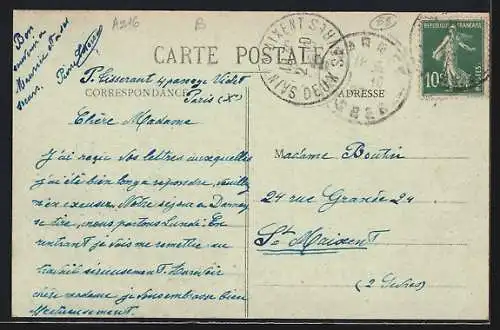 A216
B
Bon
CARTE POSTALE
P. Tisserant 4, passage Violet
CORRESPONDANCE
Paris (X)
ADRESSE
10c
Chère Madame
J'ai reçu vos lettres auxquelles
j'ai été bien longue répondre, veuillez
m'en excuser. Notre séjour à Darney
se tire, nous partons Lundi. En
rentrant je vais me remettre au
travail sérieusement
chère madame je vous embrasse bien
affectueusement
Madame Boutin
24 rue Grande 24
St Maixent
(2 Sèvres)